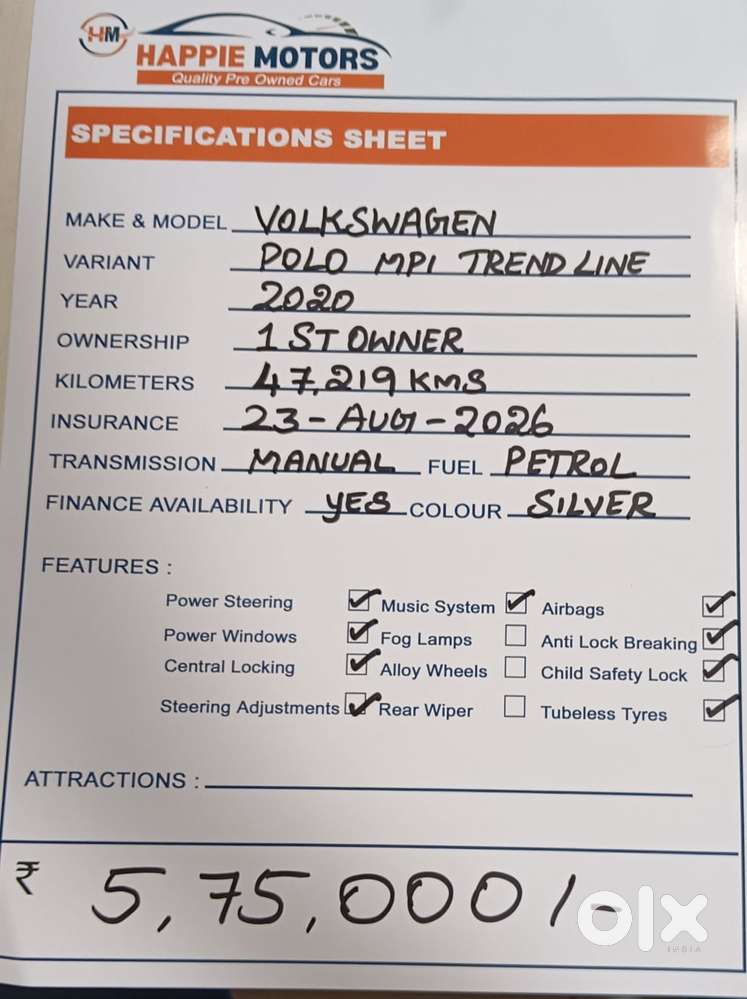 HM
HAPPIE MOTORS
Quality Pre Owned Cars
SPECIFICATIONS SHEET
MAKE & MODEL VOLKSWAGEN
VARIANT POLO MPI TRENDLINE
YEAR 2020
OWNERSHIP 1ST OWNER
KILOMETERS 47,219 KMS
INSURANCE 23-AUG-2026
TRANSMISSION MANUAL FUEL PETROL
FINANCE AVAILABILITY YES COLOUR SILVER
FEATURES :
Power Steering ✓ Music System ✓ Airbags ✓
Power Windows ✓ Fog Lamps ☐ Anti Lock Breaking ✓
Central Locking ✓ Alloy Wheels ☐ Child Safety Lock ✓
Steering Adjustments ✓ Rear Wiper ☐ Tubeless Tyres ✓
ATTRACTIONS :
₹ 5,75,000/-
olx
INDIA